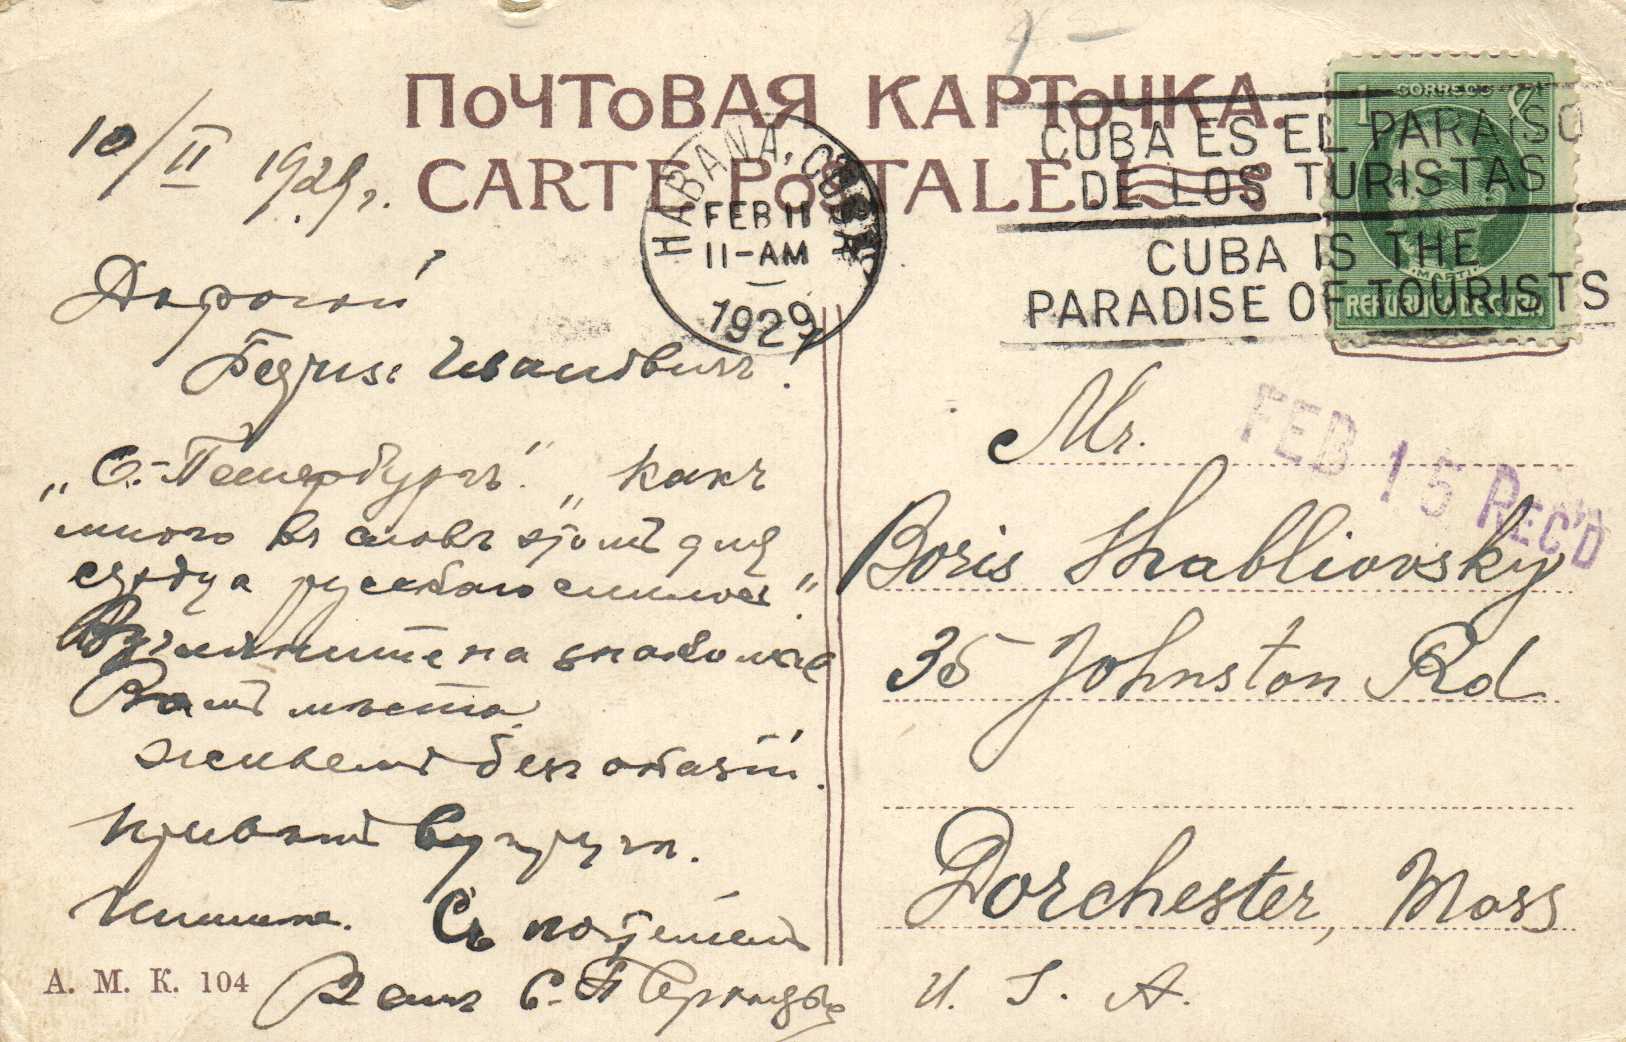 ПОЧТОВАЯ КАРТОЧКА.
CARTE POSTALE.
HABANA, CUBA
FEB 11
11-AM
1929
CORREOS
1
MARTI
REPUBLICA DE CUBA
CUBA ES EL PARAISO
DE LOS TURISTAS
CUBA IS THE
PARADISE OF TOURISTS
10/II 1929 г.
Дорогой
Ивановичъ!
„С.-Петербургъ!" „какъ
много въ словѣ этомъ для
сердца русскаго слилось"
Взгляните на знакомые
Вамъ мѣста.
Живемъ безъ оказій.
Привѣтъ супругѣ.
Пишите. Съ почтеніем
Вашъ С.
А. М. К. 104
FEB 15 REC'D
Mr.
Boris Shabliovsky
35 Johnston Rd
Dorchester, Mass
U. S. A.